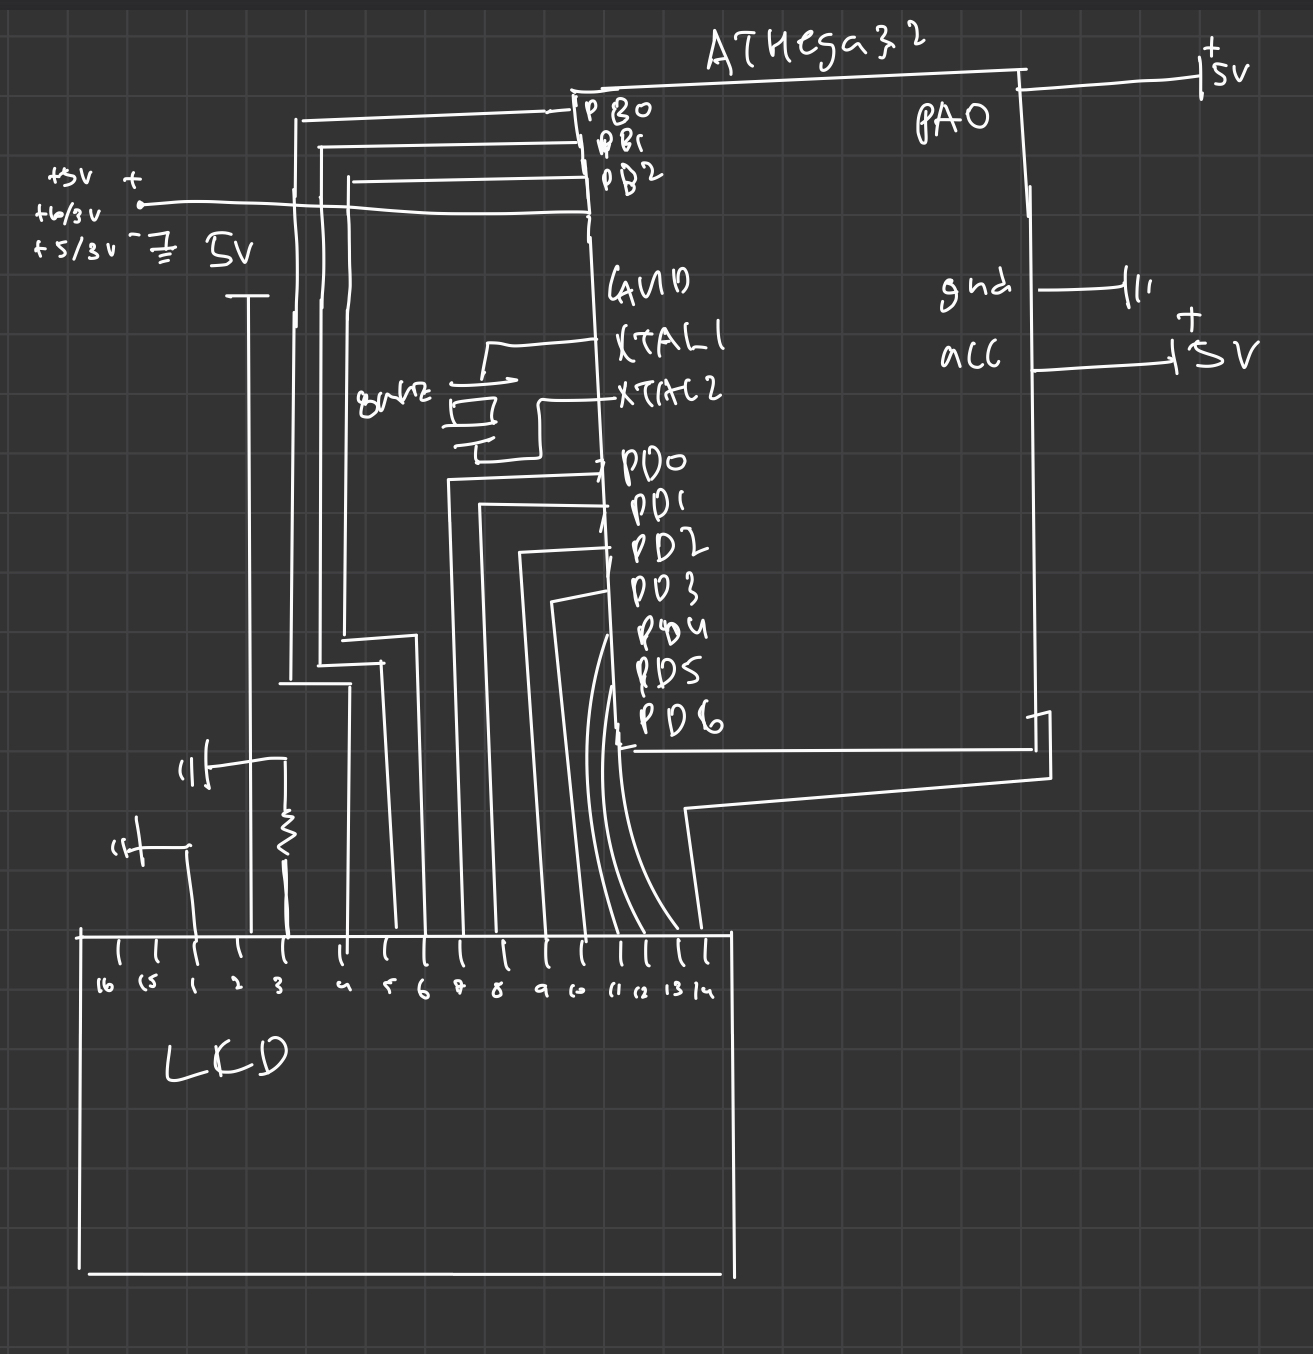 ATMega32
+
5V
PB0
PB1
PB2
PA0
+5V +
+6/3V
+5/3V - 5V
GND
XTAL1
XTAL2
8MHz
gnd
acc
+
5V
PD0
PD1
PD2
PD3
PD4
PD5
PD6
16 15 1 2 3 4 5 6 7 8 9 10 11 12 13 14
LCD